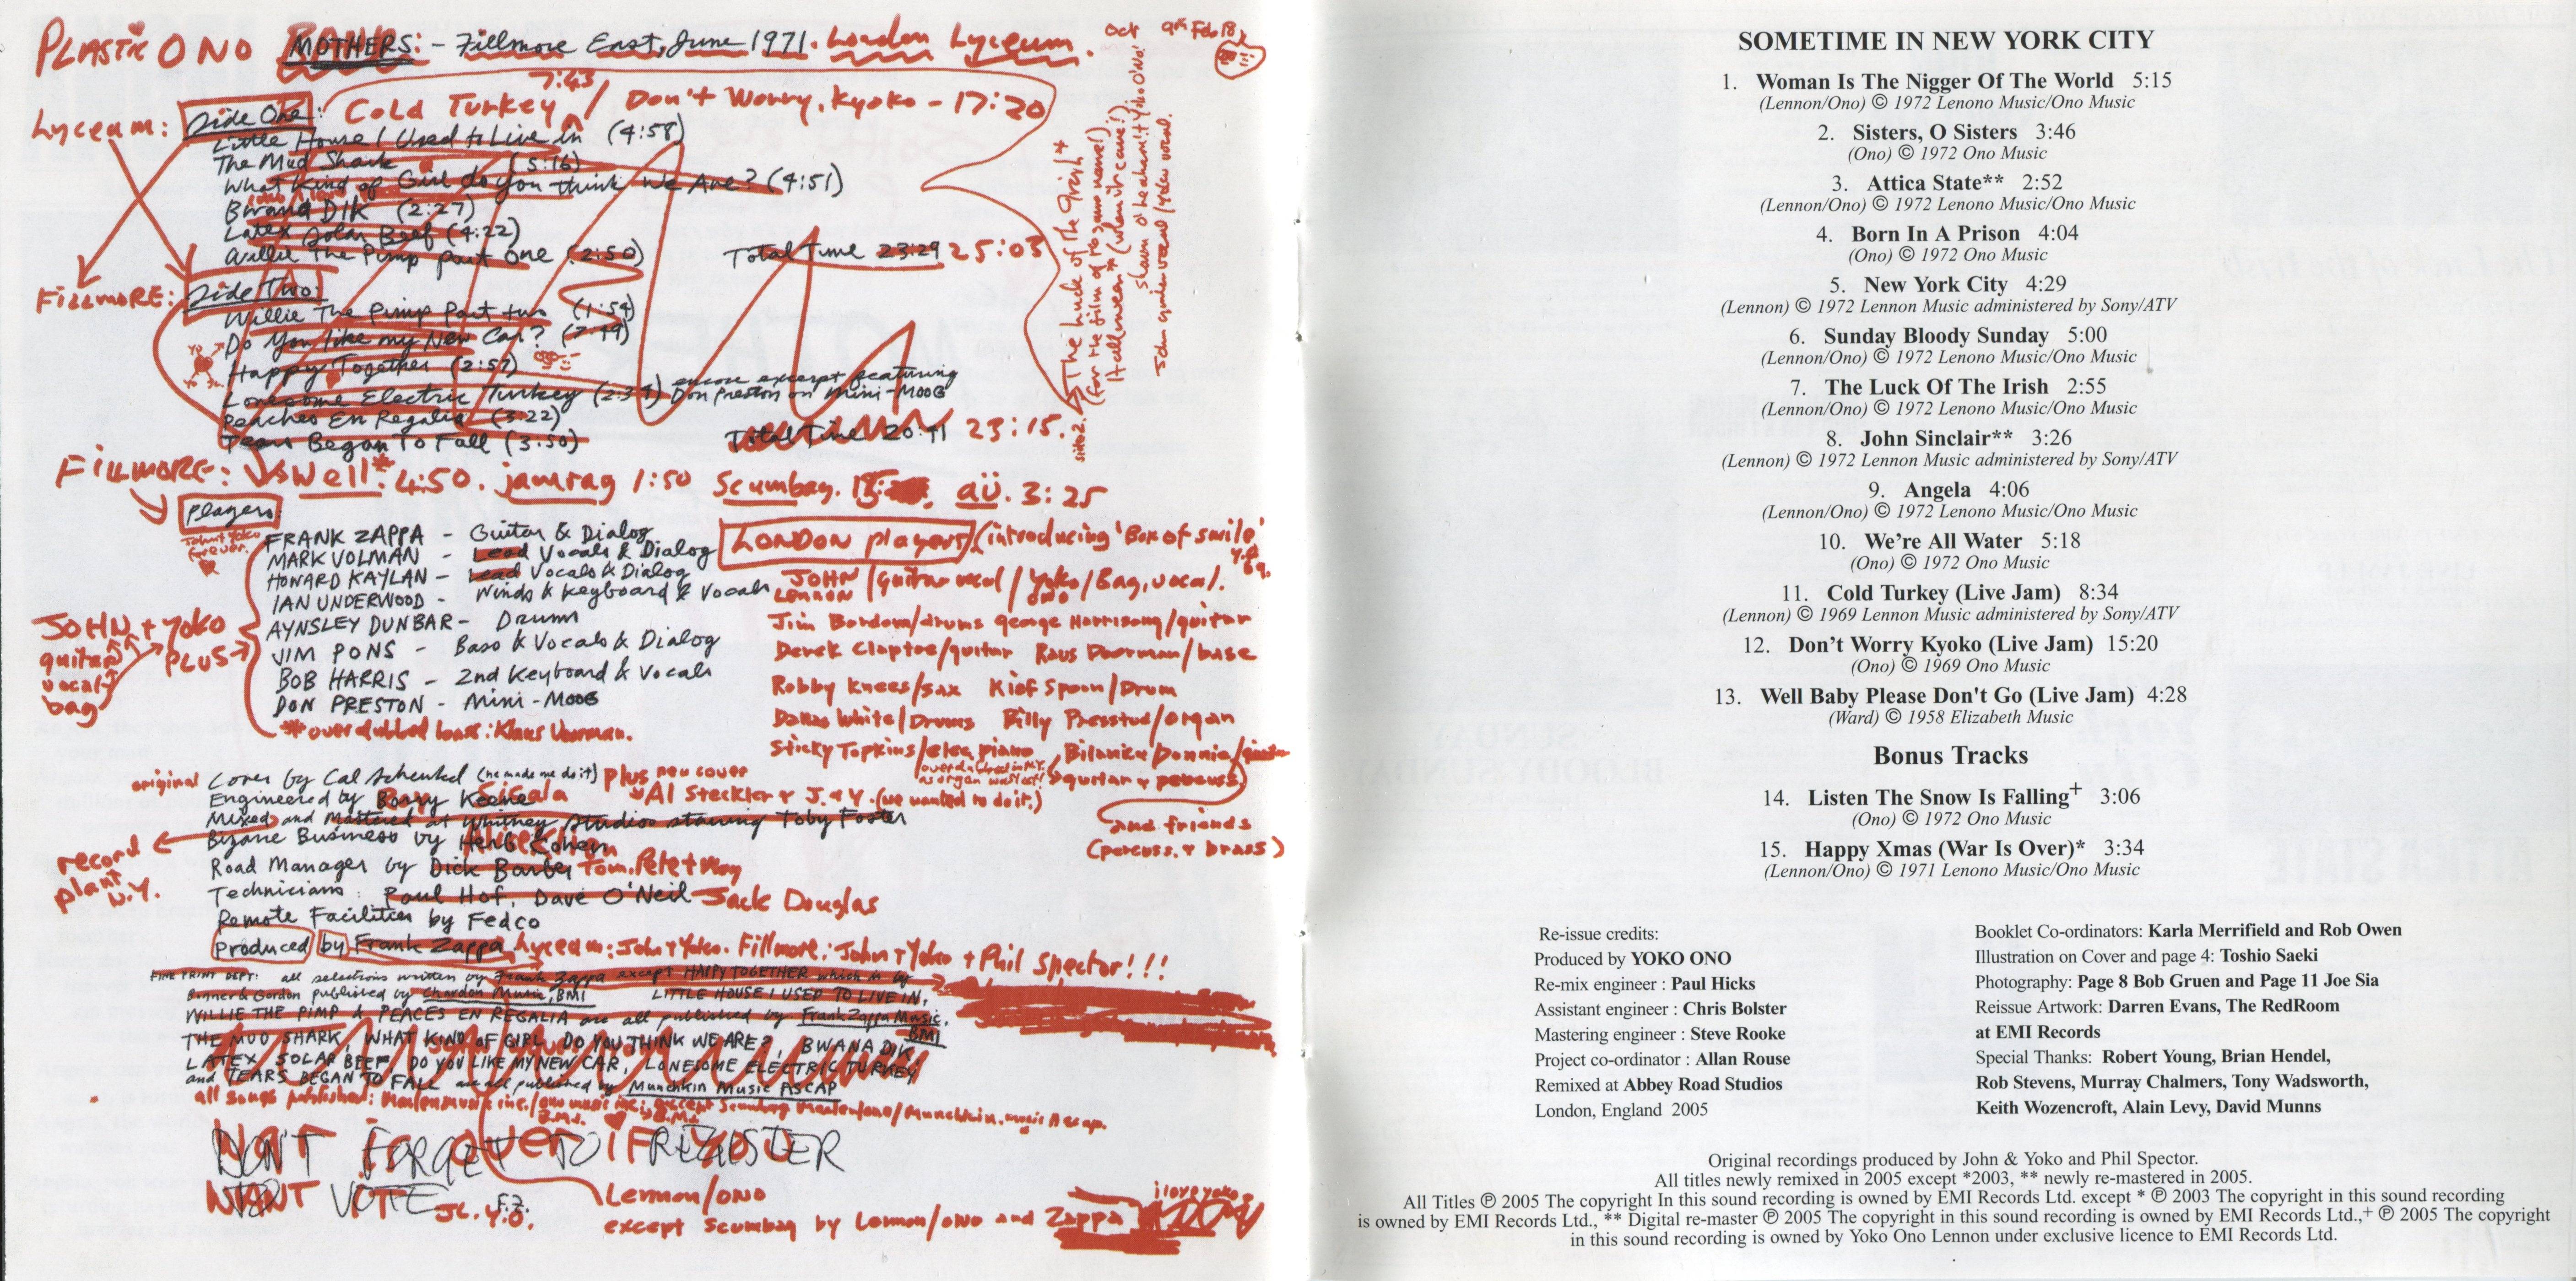 PLASTIC ONO MOTHERS: - Fillmore East, June 1971. London Lyceum.
Oct 9th Feb 18
Lyceum: Side One: Cold Turkey 7:43 / Don't Worry, Kyoko - 17:20
Little House I Used to Live in (4:58)
The Mud Shark (5:16)
What Kind of Girl do you think We Are? (4:51)
Bwana DIK (2:27)
Latex Solar Beef (4:22)
Willie The Pimp part One (2:50)
Total Time 23:29 25:03
FILLMORE: Side Two:
Willie The Pimp Part two (1:54)
Do You like my New Car?
Happy Together (2:57)
Lonesome Electric Turkey encore excerpt featuring
Don Preston on Mini-MOOG
Peaches En Regalia (3:22)
Tears Began To Fall (3:50)
Total Time 23:15.
side 2.
The luck of the Irish
(for the film of the same name!)
FILLMORE: Well* 4:50. jamrag 1:50 Scumbag. aü. 3:25
players:
John + Yoko
forever.
FRANK ZAPPA - Guitar & Dialog
MARK VOLMAN - Lead Vocals & Dialog
HOWARD KAYLAN - Lead Vocals & Dialog
IAN UNDERWOOD - Winds & Keyboard & Vocals
AYNSLEY DUNBAR - Drums
JIM PONS - Bass & Vocals & Dialog
BOB HARRIS - 2nd Keyboard & Vocals
DON PRESTON - Mini-MOOG
*overdubbed bass: Klaus Voorman.
JOHN + YOKO
guitar
vocal
bag
PLUS
LONDON players (introducing 'Box of smile'
JOHN LENNON / guitar vocal / Yoko ONO / Bag, vocal.
Jim Bordom/drums george Harrisong/guitar
Derek Claptoe/guitar Raus Doorman/base
Robby Knees/sax Kief Spoon/Drum
Dallas White/Drums Billy Presstud/organ
Sticky Topkins/elec piano
overdubbed in N.Y.
as organ was lost!
Bilanie & Donnie/
guitar & percuss)
and friends
(percuss. + brass)
original Cover by Cal Schenkel (he made me do it) plus new cover
Al Steckler + J. + Y. (we wanted to do it.)
Engineered by Barry Keene
Mixed and Mastered at Whitney Studios starring Toby Foster
record
plant
N.Y.
Bizarre Business by Herb Cohen
Road Manager by Dick Barber Tom. Pete + May
Technicians: Paul Hof, Dave O'Neil Jack Douglas
Remote Facilities by Fedco
Produced by Frank Zappa, Lyceum: John + Yoko. Fillmore: John + Yoko + Phil Spector!!!
FINE PRINT DEPT: all selections written by Frank Zappa except HAPPY TOGETHER which is by
Bonner & Gordon published by Chardon Music, BMI LITTLE HOUSE I USED TO LIVE IN,
WILLIE THE PIMP & PEACES EN REGALIA are all published by Frank Zappa Music, BMI
THE MUD SHARK, WHAT KIND OF GIRL DO YOU THINK WE ARE?, BWANA DIK
LATEX SOLAR BEEF, DO YOU LIKE MY NEW CAR, LONESOME ELECTRIC TURKEY
and TEARS BEGAN TO FALL are all published by Munchkin Music ASCAP
all songs published: Maclenmusic inc./ono music inc. except Scumbag Maclen/ono/Munchkin.music Ascap.
B.M.I. B.M.I.
DON'T FORGET TO REGISTER
TO VOTE F.Z.
War is over if You
WANT IT JL. Y.O.
Lennon/ONO
except Scumbag by Lennon/ONO and Zappa
i love yoko
SOMETIME IN NEW YORK CITY
1. Woman Is The Nigger Of The World 5:15
(Lennon/Ono) © 1972 Lenono Music/Ono Music
2. Sisters, O Sisters 3:46
(Ono) © 1972 Ono Music
3. Attica State** 2:52
(Lennon/Ono) © 1972 Lenono Music/Ono Music
4. Born In A Prison 4:04
(Ono) © 1972 Ono Music
5. New York City 4:29
(Lennon) © 1972 Lennon Music administered by Sony/ATV
6. Sunday Bloody Sunday 5:00
(Lennon/Ono) © 1972 Lenono Music/Ono Music
7. The Luck Of The Irish 2:55
(Lennon/Ono) © 1972 Lenono Music/Ono Music
8. John Sinclair** 3:26
(Lennon) © 1972 Lennon Music administered by Sony/ATV
9. Angela 4:06
(Lennon/Ono) © 1972 Lenono Music/Ono Music
10. We're All Water 5:18
(Ono) © 1972 Ono Music
11. Cold Turkey (Live Jam) 8:34
(Lennon) © 1969 Lennon Music administered by Sony/ATV
12. Don't Worry Kyoko (Live Jam) 15:20
(Ono) © 1969 Ono Music
13. Well Baby Please Don't Go (Live Jam) 4:28
(Ward) © 1958 Elizabeth Music
Bonus Tracks
14. Listen The Snow Is Falling+ 3:06
(Ono) © 1972 Ono Music
15. Happy Xmas (War Is Over)* 3:34
(Lennon/Ono) © 1971 Lenono Music/Ono Music
Re-issue credits:
Produced by YOKO ONO
Re-mix engineer : Paul Hicks
Assistant engineer : Chris Bolster
Mastering engineer : Steve Rooke
Project co-ordinator : Allan Rouse
Remixed at Abbey Road Studios
London, England 2005
Booklet Co-ordinators: Karla Merrifield and Rob Owen
Illustration on Cover and page 4: Toshio Saeki
Photography: Page 8 Bob Gruen and Page 11 Joe Sia
Reissue Artwork: Darren Evans, The RedRoom
at EMI Records
Special Thanks: Robert Young, Brian Hendel,
Rob Stevens, Murray Chalmers, Tony Wadsworth,
Keith Wozencroft, Alain Levy, David Munns
Original recordings produced by John & Yoko and Phil Spector.
All titles newly remixed in 2005 except *2003, ** newly re-mastered in 2005.
All Titles ℗ 2005 The copyright In this sound recording is owned by EMI Records Ltd. except * ℗ 2003 The copyright in this sound recording
is owned by EMI Records Ltd., ** Digital re-master ℗ 2005 The copyright in this sound recording is owned by EMI Records Ltd.,+ ℗ 2005 The copyright
in this sound recording is owned by Yoko Ono Lennon under exclusive licence to EMI Records Ltd.